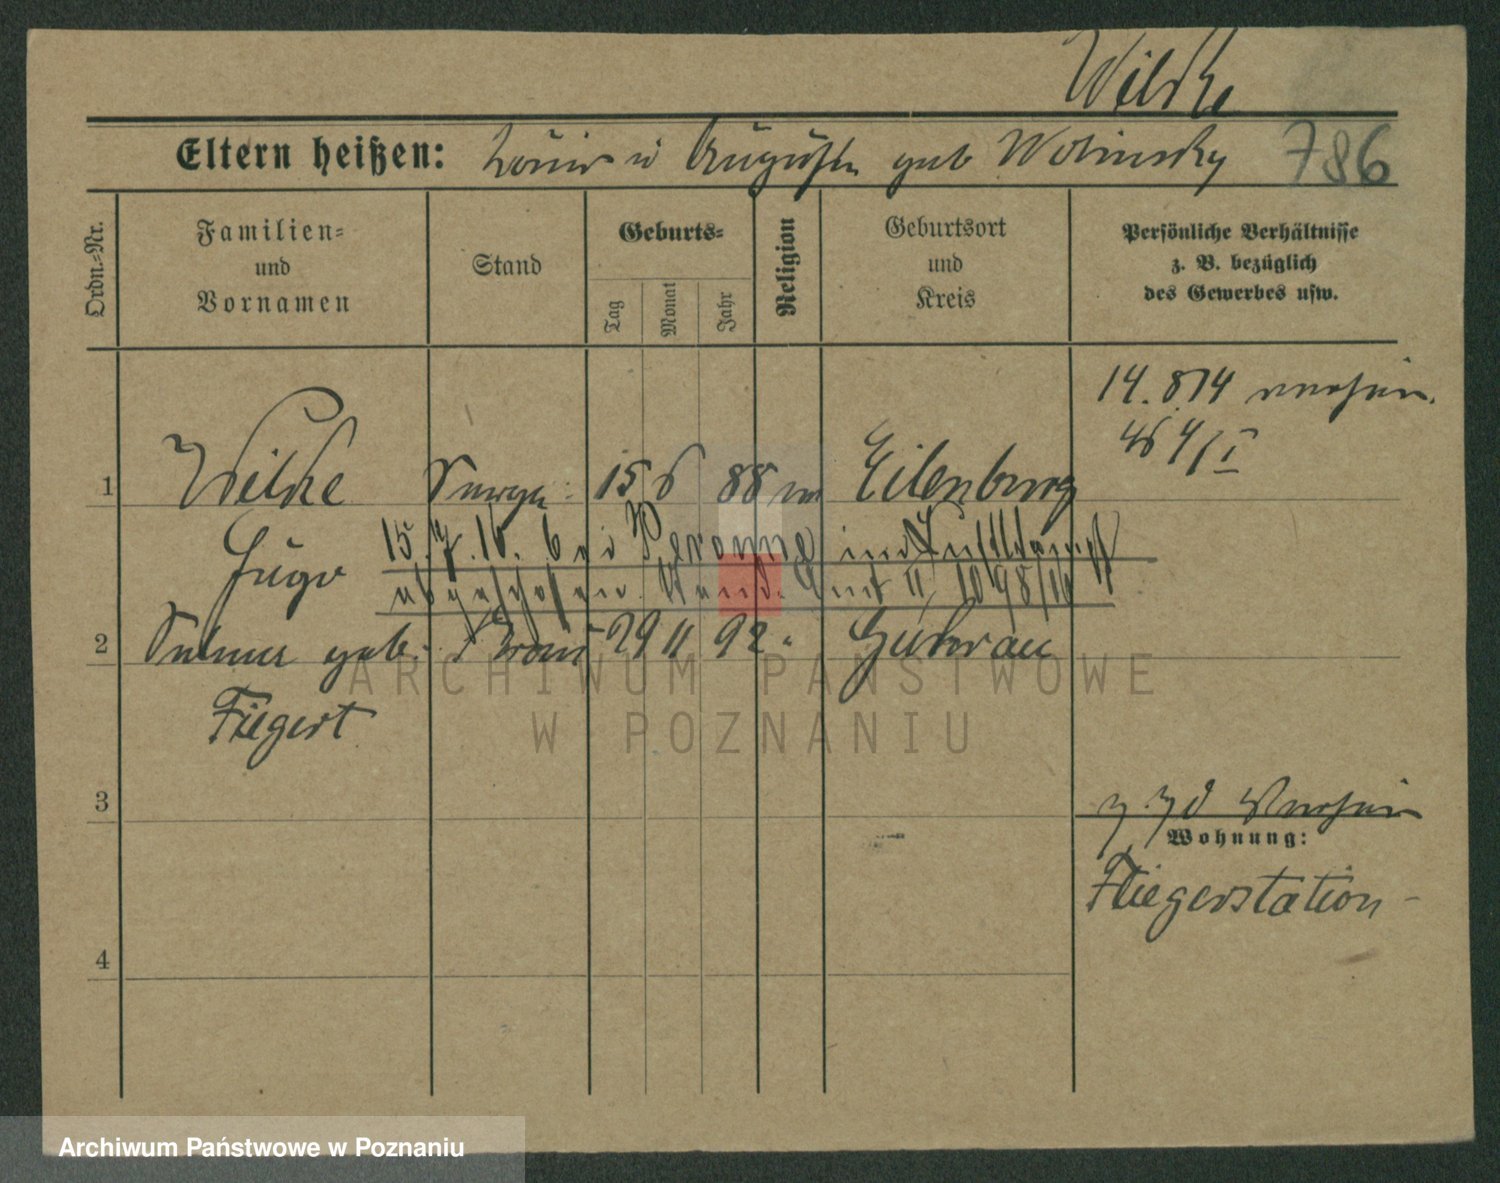 Wilke
Eltern heißen: Louis u Auguste geb Wolinsky 786
Ordn.-Nr.
Familien-
und
Vornamen
Stand
Geburts-
Tag
Monat
Jahr
Religion
Geburtsort
und
Kreis
Persönliche Verhältnisse
z. B. bezüglich
des Gewerbes usw.
14.8.14
1 Wilke 15 6 88 Eilenburg
Hugo
15.7.16. bei Peronne im Luftkampf
abgeschossen. Stand. Amt II
2 geb. Frau 29 11 92 " Guhrau
Fiegert
3
Wohnung:
Fliegerstation
4
ARCHIWUM PAŃSTWOWE
W POZNANIU
Archiwum Państwowe w Poznaniu